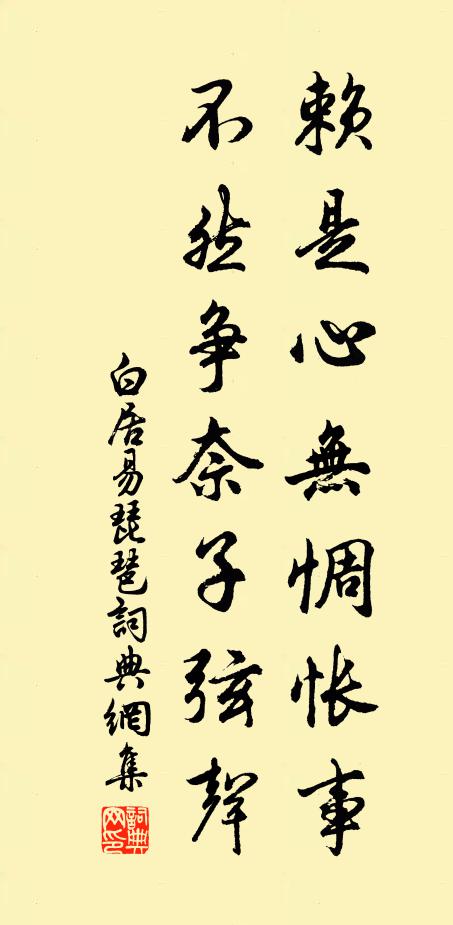 赖是心無惆怅事
不然争奈子弦聲
白居易琵琶詞典網集
詞典網印